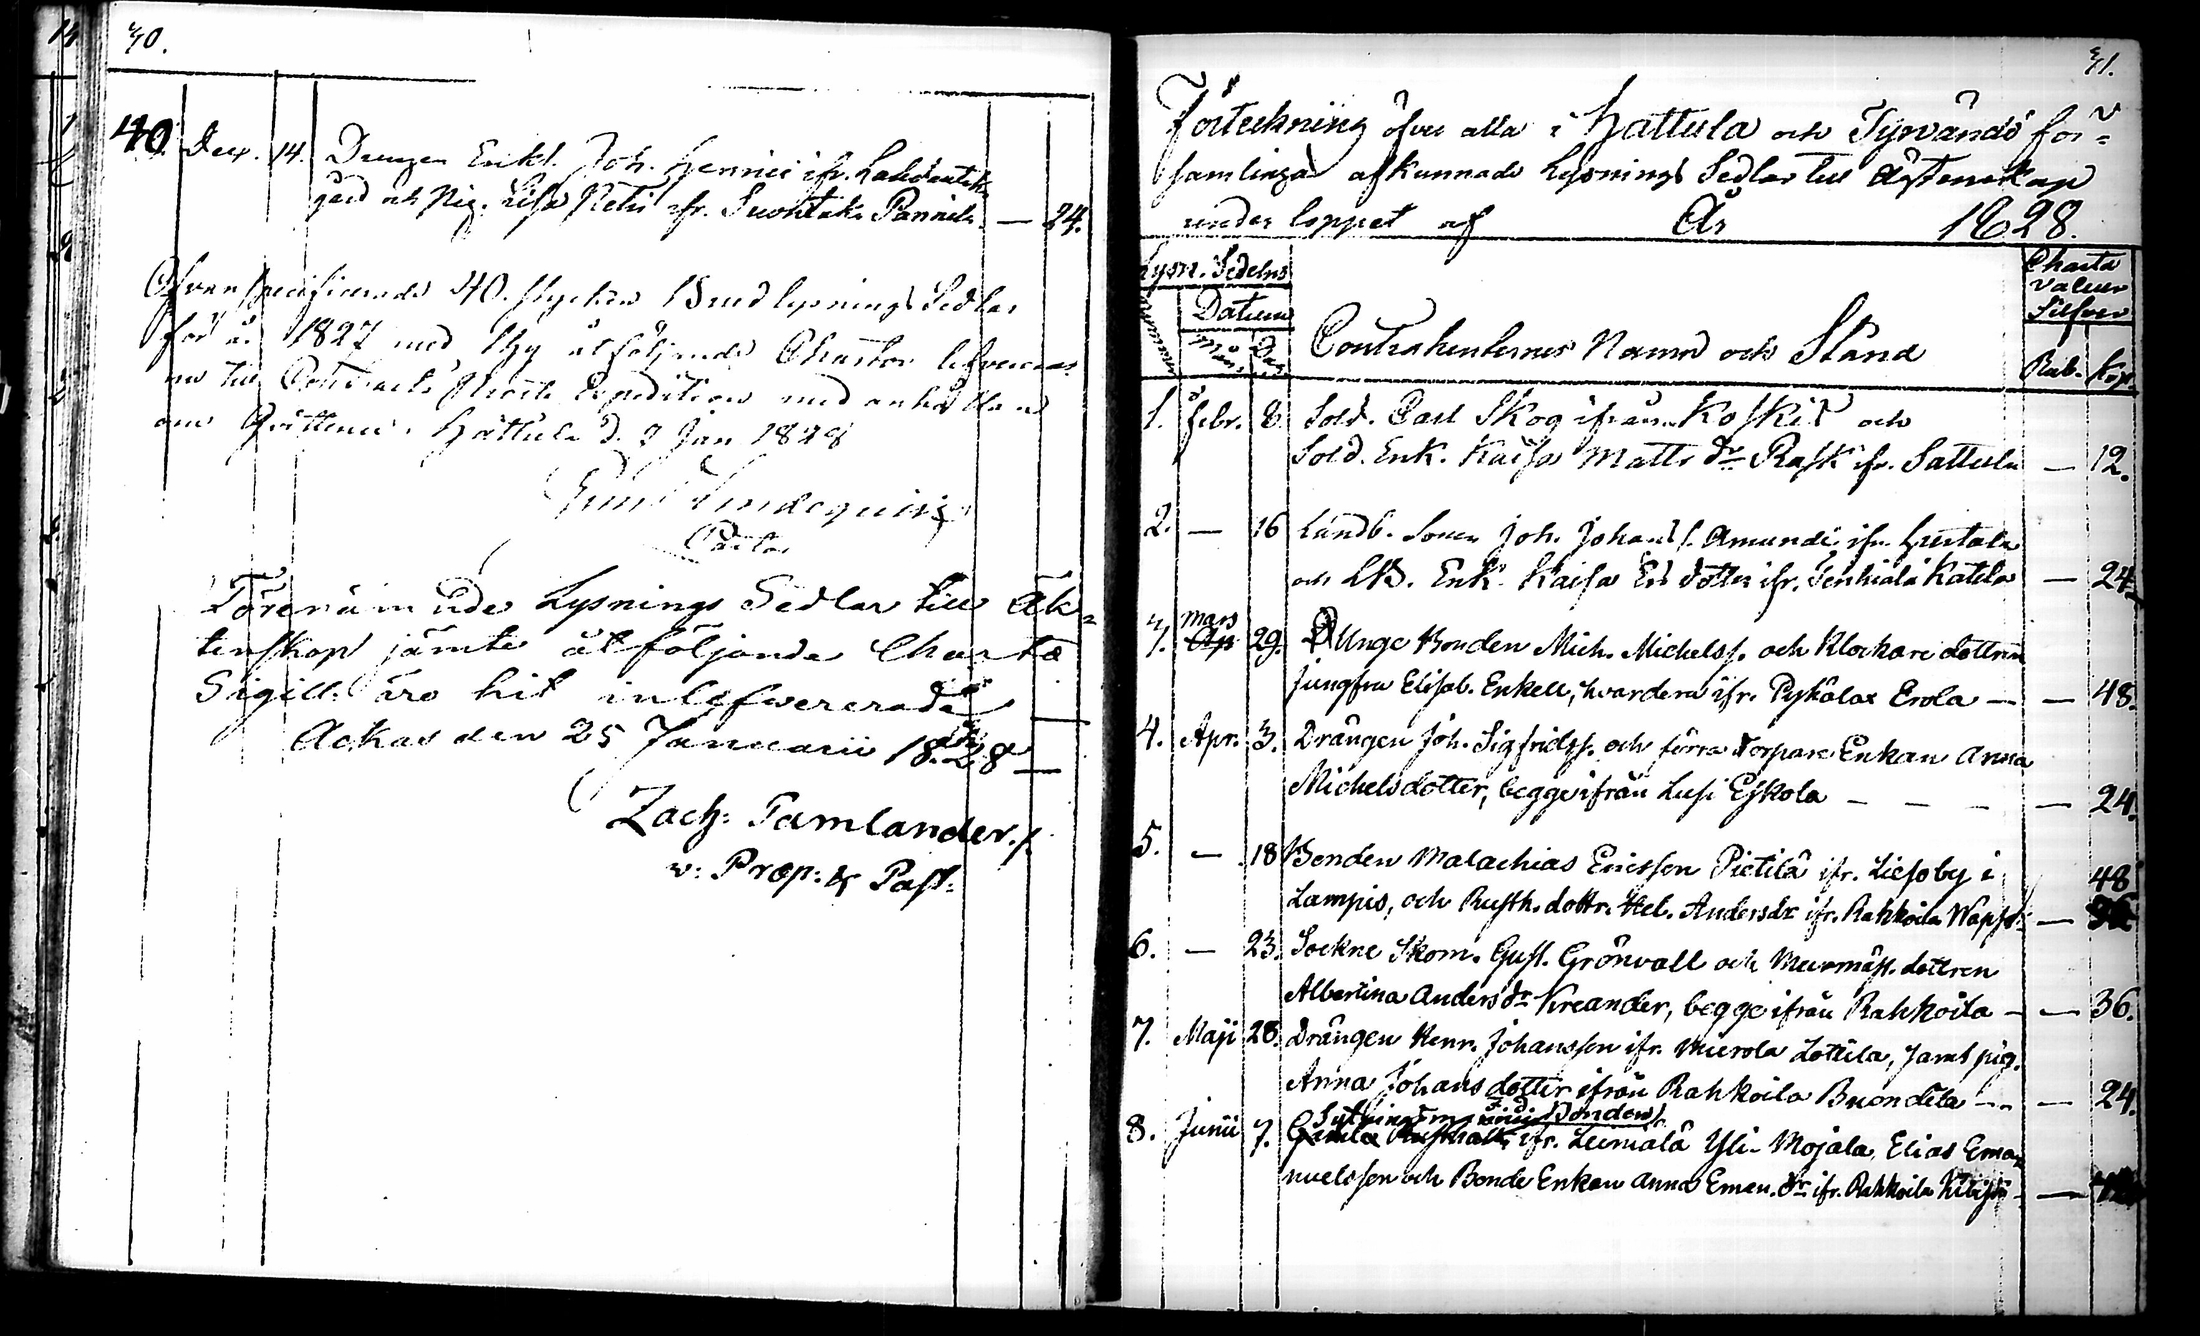 40.
40. Dec. 14. Drengen Enkl. Joh. Henrici ifr. Lahdentaka
gård och Pig. Lisa Petri ifr. Suontaka Pannila — 24.
Ofvanspecificerade 40. stycken Brudlysnings Sedlar
för år 1827 med thy åtföljande Chartor lefvereras
nu till Contracts Prosts Expedition med anhållan
om Qvittence. Hattula d. 2 Jan 1828
Lindequist
Pastor
Förenämnde Lysnings Sedlar till Äk-
tenskap jämte åtföljande Charta
Sigill. äro hit inlefvererade
Ackas den 25 Januarii 1828 —
Zach: Tamlander./.
v: Prop: & Past:
41.
Förteckning öfver alla i Hattula och Tyrvändö för-
samlingar afkunnade Lysnings Sedlar till Äktenskap
under loppet af År 1828.
Lysn. Sedelns
Charta
valeur
Silfver
Datum
Mån. Dag.
Contrahenternes Namn och Stånd
Rub. Kop.
1. Febr. 8. Sold. Carl Skog ifrån Koskis och
Sold. Enk. Kaisa Matts dr Rask ifr. Sattula — 12.
2. — 16 Landb. Sonen Joh. Johans s. Amundi ifr. Hurtala
och LB. Enk. Kaisa Er. dotter ifr. Tenhiälä Katila — 24
Mars
Ap 29. Unge Bonden Mich. Michelss. och Klockare dottren
Jungfru Elisab. Enkell, hvardera ifr. Pyhälax Erola — — 48.
4. Apr. 3. Drängen Joh. Sigfridss. och förra Torpare Enkan Anna
Michelsdotter, begge ifrån Lusi Eskola — — — — 24.
5. — 18 Bonden Malachias Ericsson Pietilä ifr. Liesoby i 48
Lampis, och Rusth. dottr. Hel. Andersdr ifr. Rahkoila —
6. — 23. Sockne Skom. Gust. Grönvall och Murmäst. dottren
Albertina Anders dr Kreander, begge ifrån Rahkoila — — 36.
7. Maji 28. Drängen Henr. Johansson ifr. Mierola Lottila, samt pig.
Anna Johans dotter ifrån Rahkoila Buondela — — 24.
Sytningsm. Bonden
8. Junii 7. Gamla Rusthåll. ifr. Leiniälä Yli-Mojala, Elias Ema-
nuelsson och Bonde Enkan Anna Eman. dr ifr. Rahkoila —